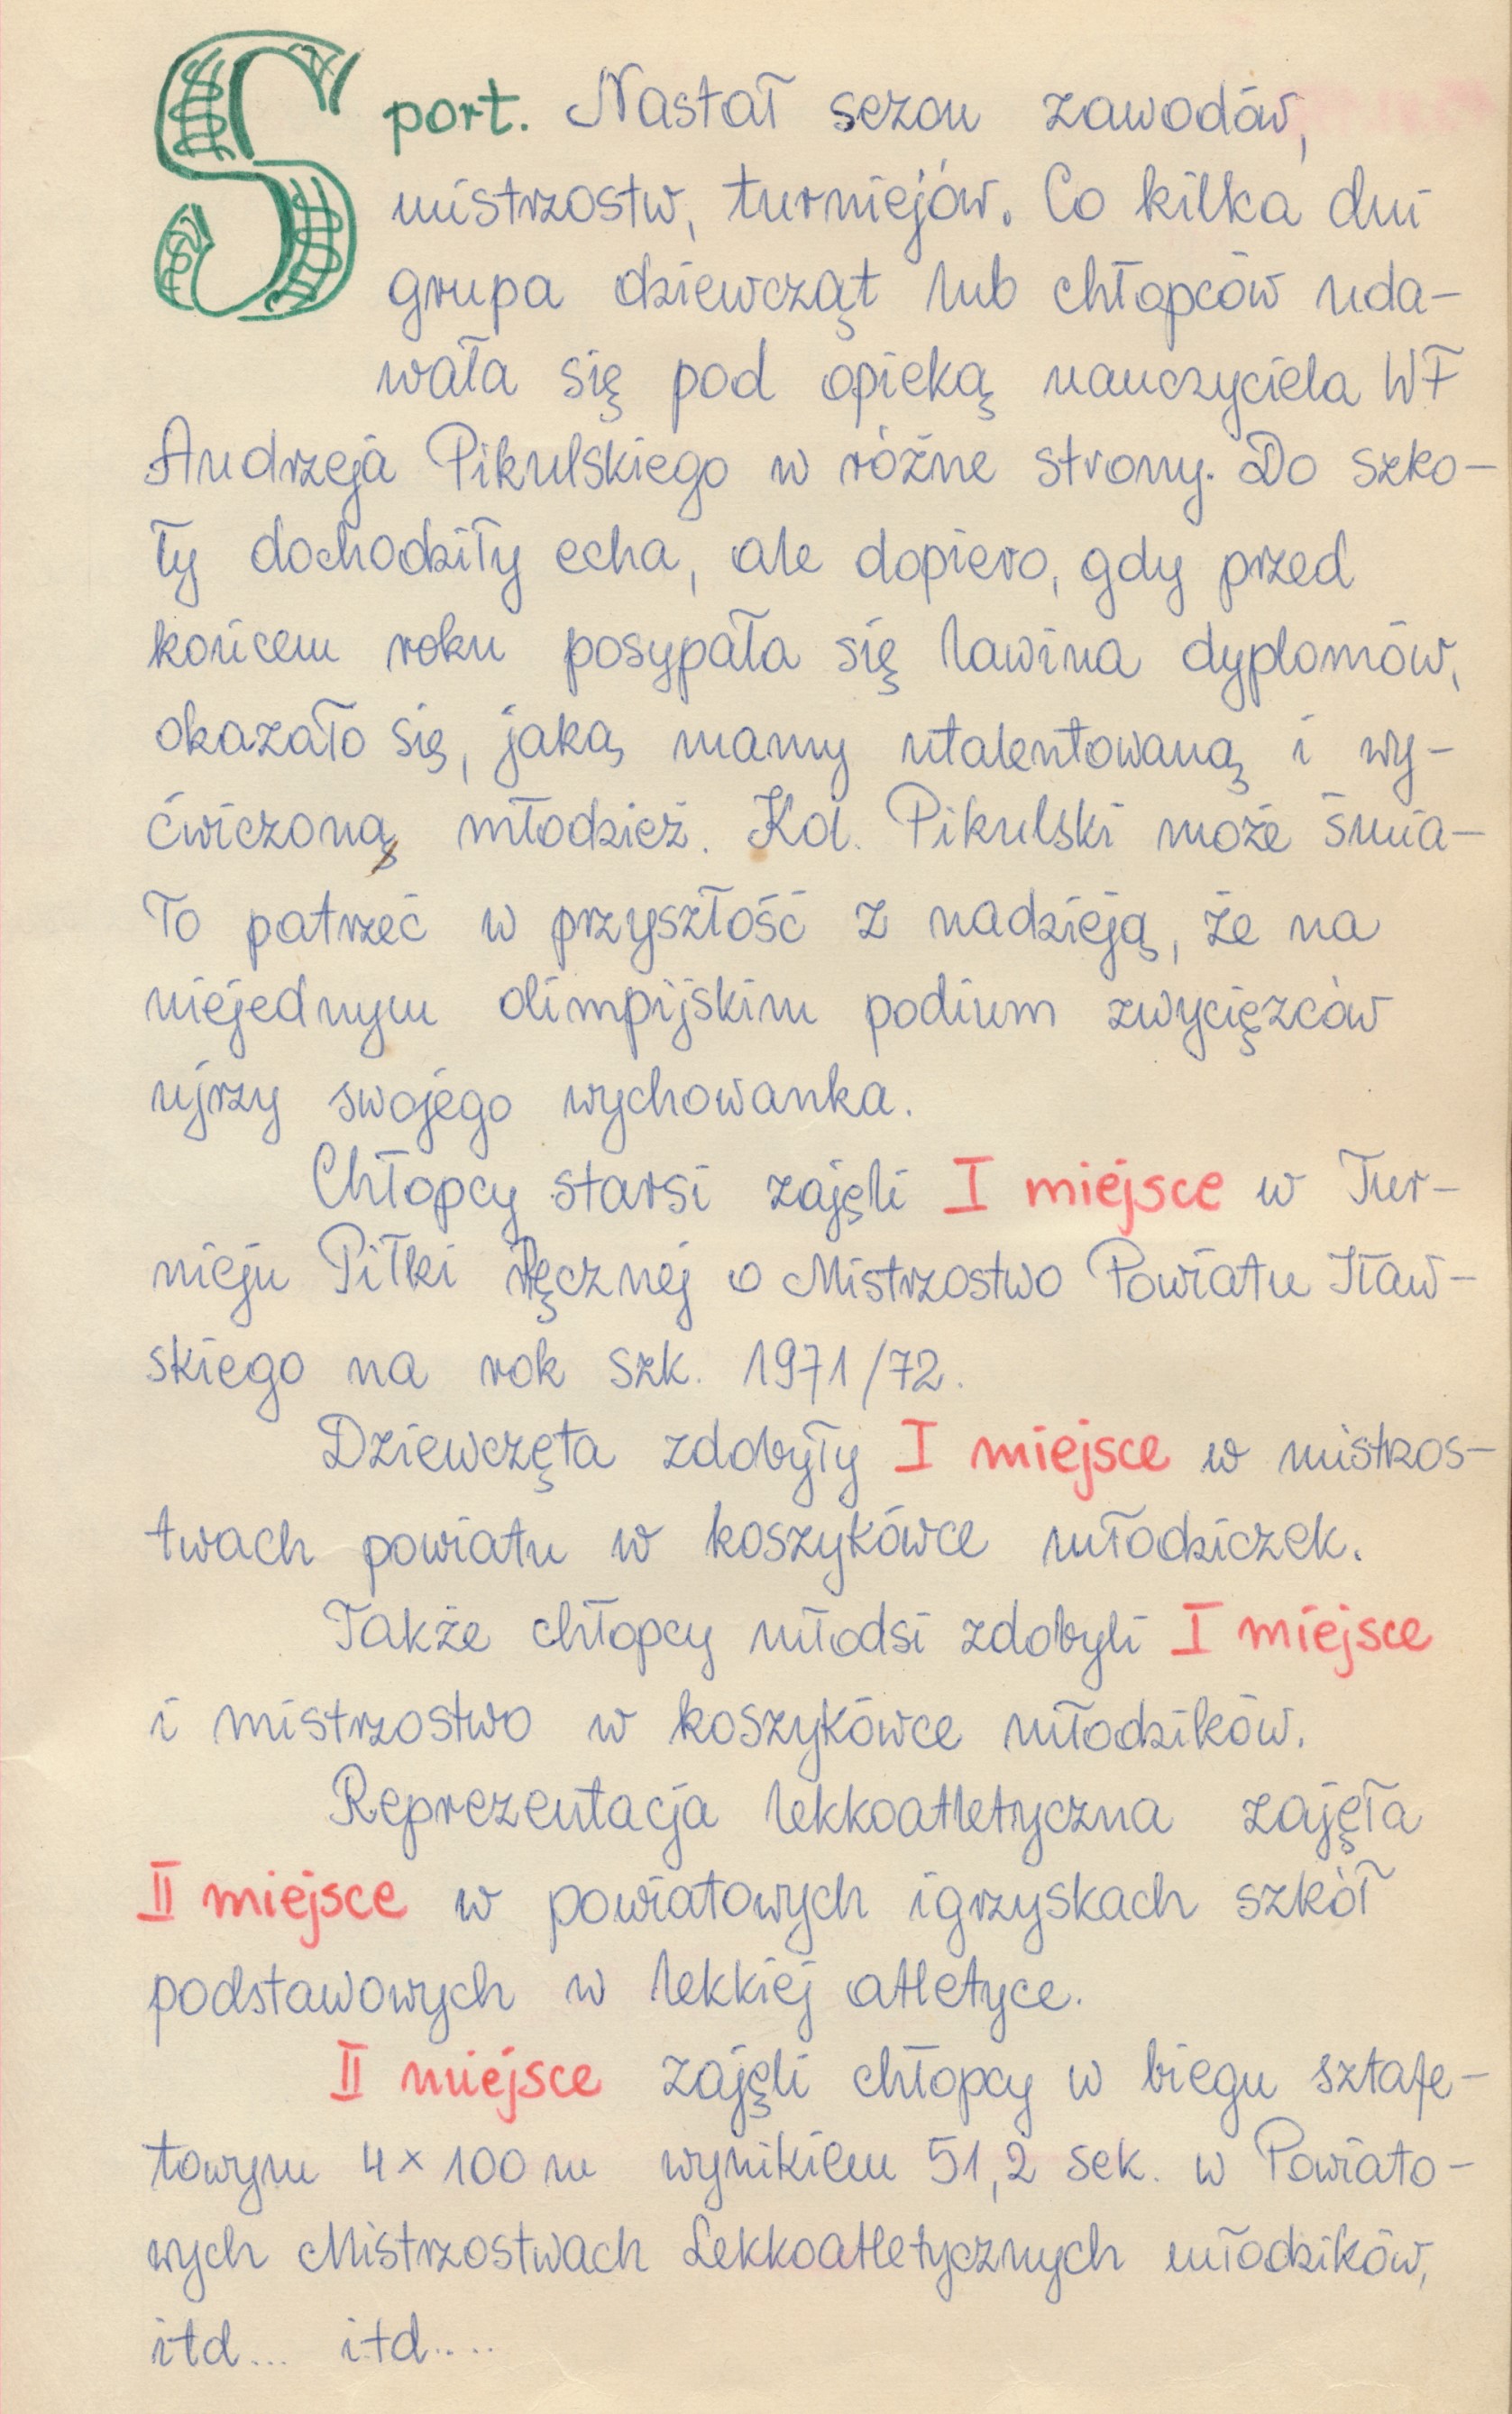 Sport. Nastał sezon zawodów,
mistrzostw, turniejów. Co kilka dni
grupa dziewcząt lub chłopców uda-
wała się pod opieką nauczyciela WF
Andrzeja Pikulskiego w różne strony. Do szko-
ły dochodziły echa, ale dopiero, gdy przed
końcem roku posypała się lawina dyplomów,
okazało się, jaką mamy utalentowaną i wy-
ćwiczoną młodzież. Kol. Pikulski może śmia-
ło patrzeć w przyszłość z nadzieją, że na
niejednym olimpijskim podium zwycięzców
ujrzy swojego wychowanka.
Chłopcy starsi zajęli I miejsce w Tur-
nieju Piłki Ręcznej o Mistrzostwo Powiatu Iław-
skiego na rok szk. 1971/72.
Dziewczęta zdobyły I miejsce w mistrzos-
twach powiatu w koszykówce młodziczek.
Także chłopcy młodsi zdobyli I miejsce
i mistrzostwo w koszykówce młodzików.
Reprezentacja lekkoatletyczna zajęła
II miejsce w powiatowych igrzyskach szkół
podstawowych w lekkiej atletyce.
II miejsce zajęli chłopcy w biegu sztafe-
towym 4 x 100 m wynikiem 51,2 sek. w Powiato-
wych Mistrzostwach Lekkoatletycznych młodzików,
itd... itd....